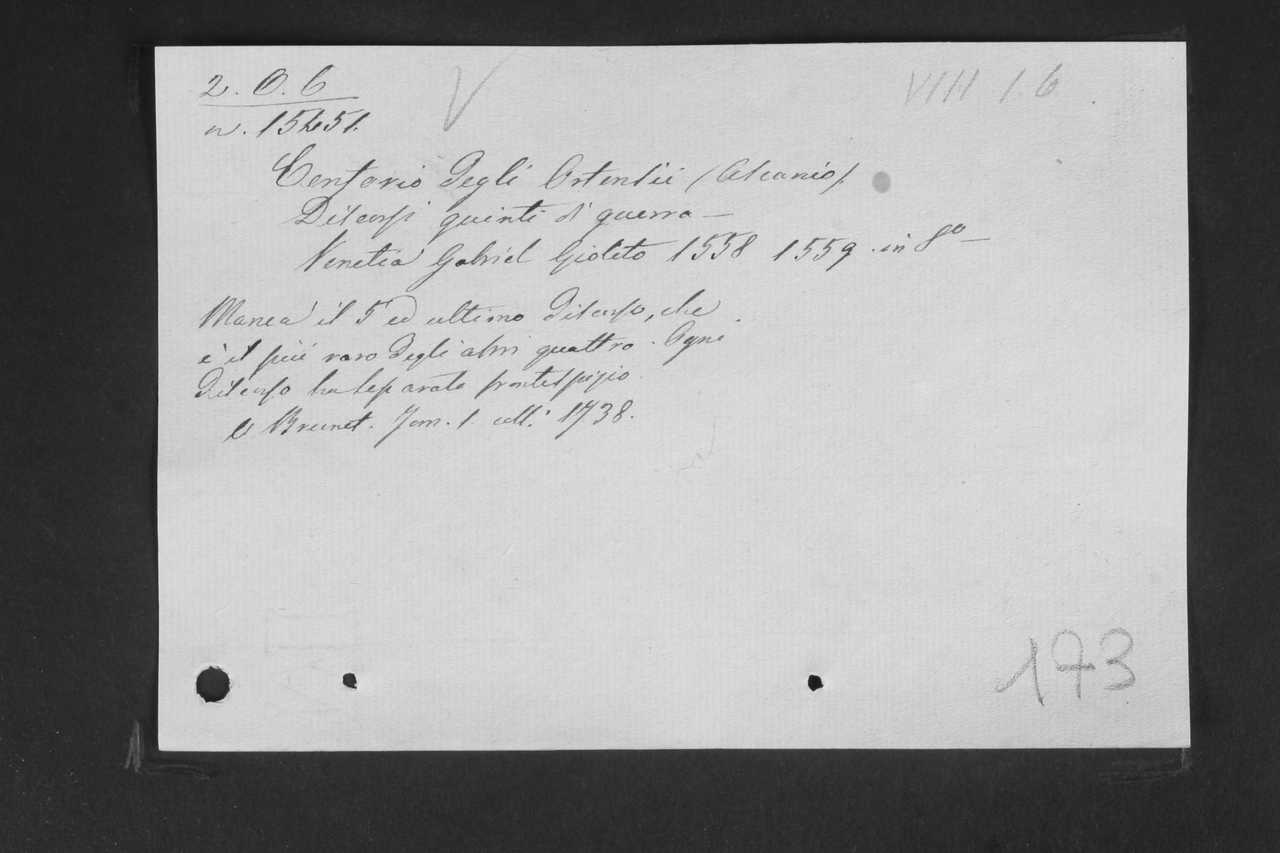 2. O. 6
VIII 1.6
n. 15451.
Centorio degli Ortensii (Ascanio).
Discorsi quinti di guerra —
Venetia Gabriel Giolito 1558 1559. in 8° —
Manca il 5 ed ultimo discorso, che
è il più raro degli altri quattro. Ogni
Discorso ha separato frontespizio.
Brunet. Tom. 1. col. 1738.
173